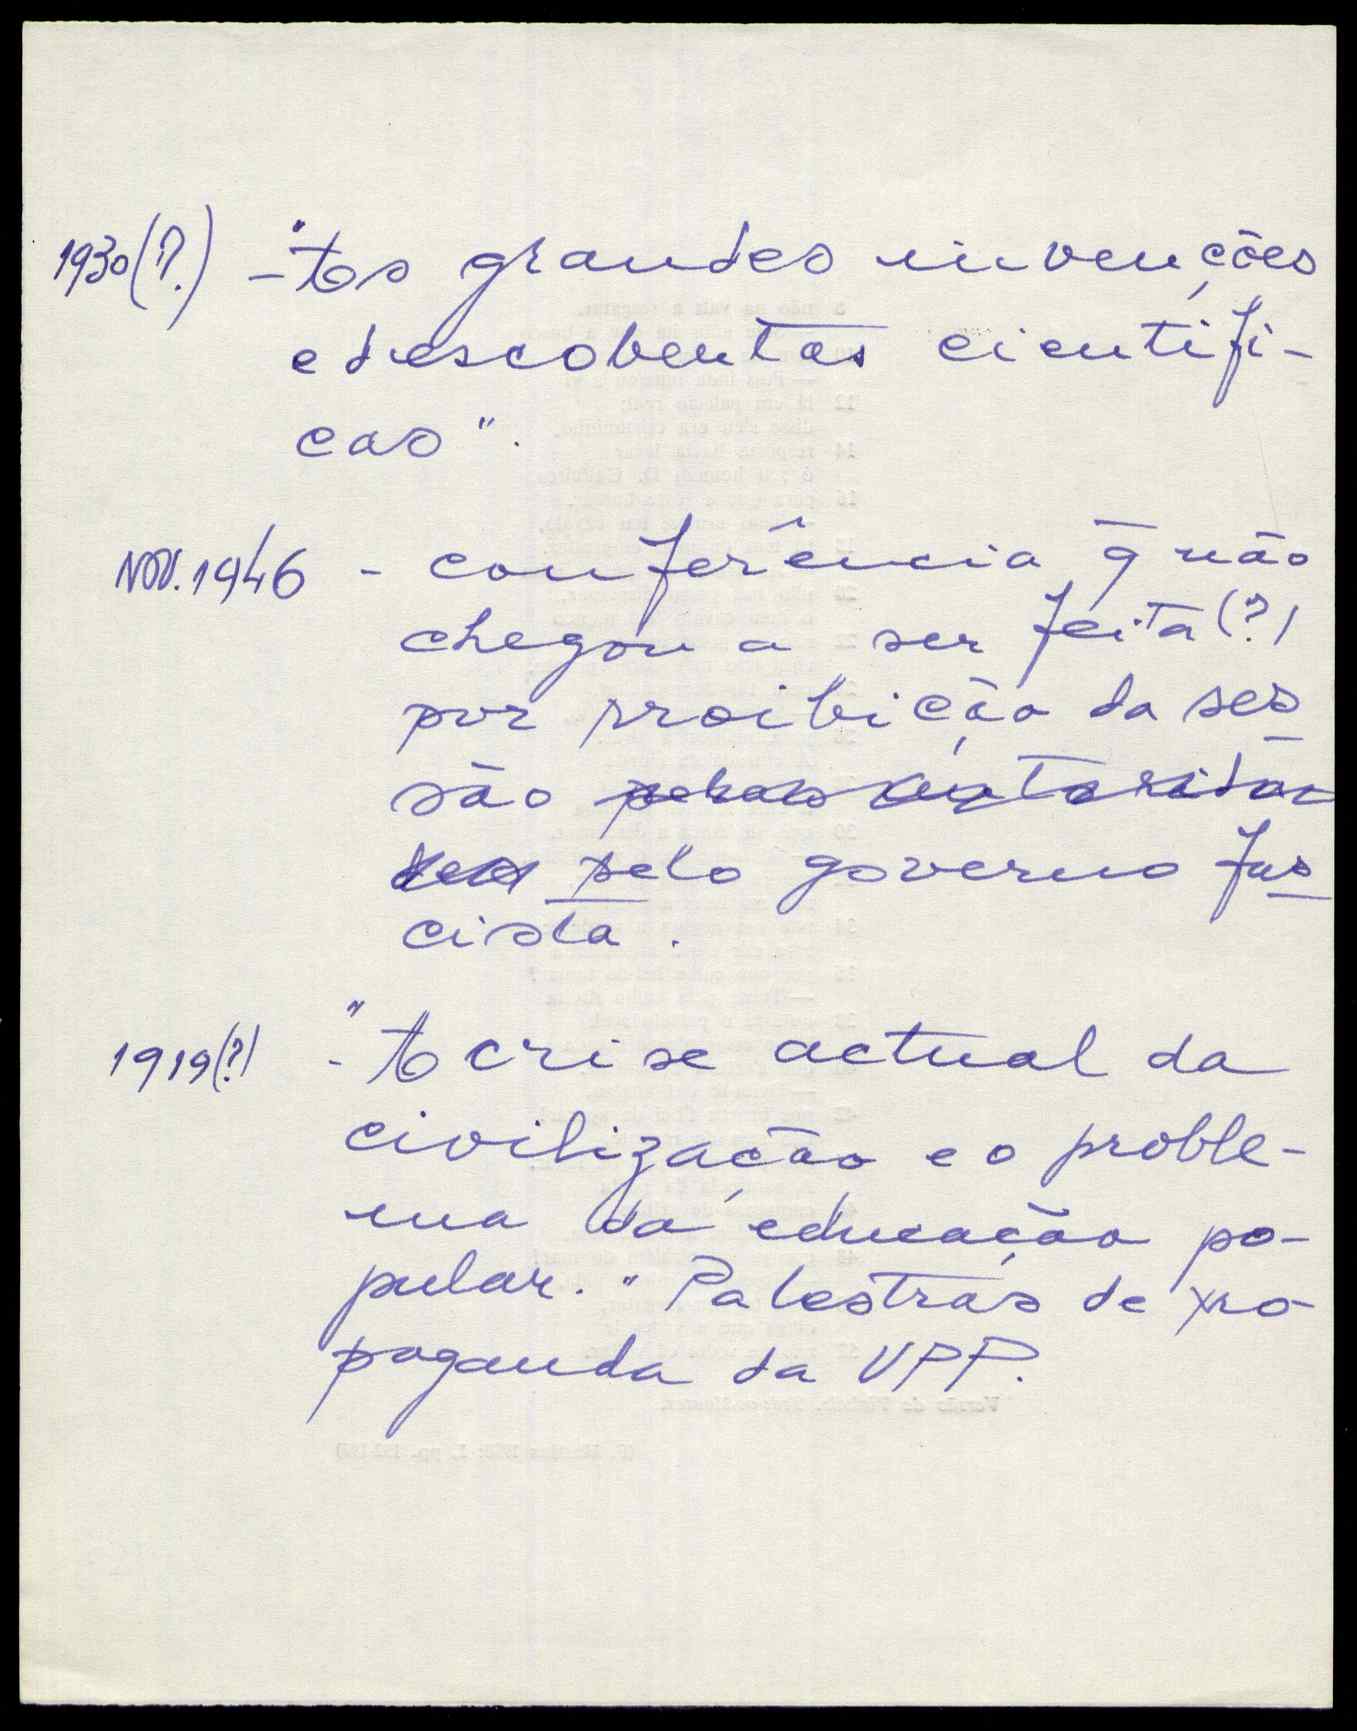 1930(?) - "As grandes invenções
e descobertas cientifi-
cas".
NOV. 1946 - conferência q̄ não
chegou a ser feita (?)
por proibição da ses
são pelas autorida
des pelo governo fas
cista.
1919(?) - "A crise actual da
civilização e o proble-
ma da educação po-
pular." Palestras de pro-
paganda da UPP.